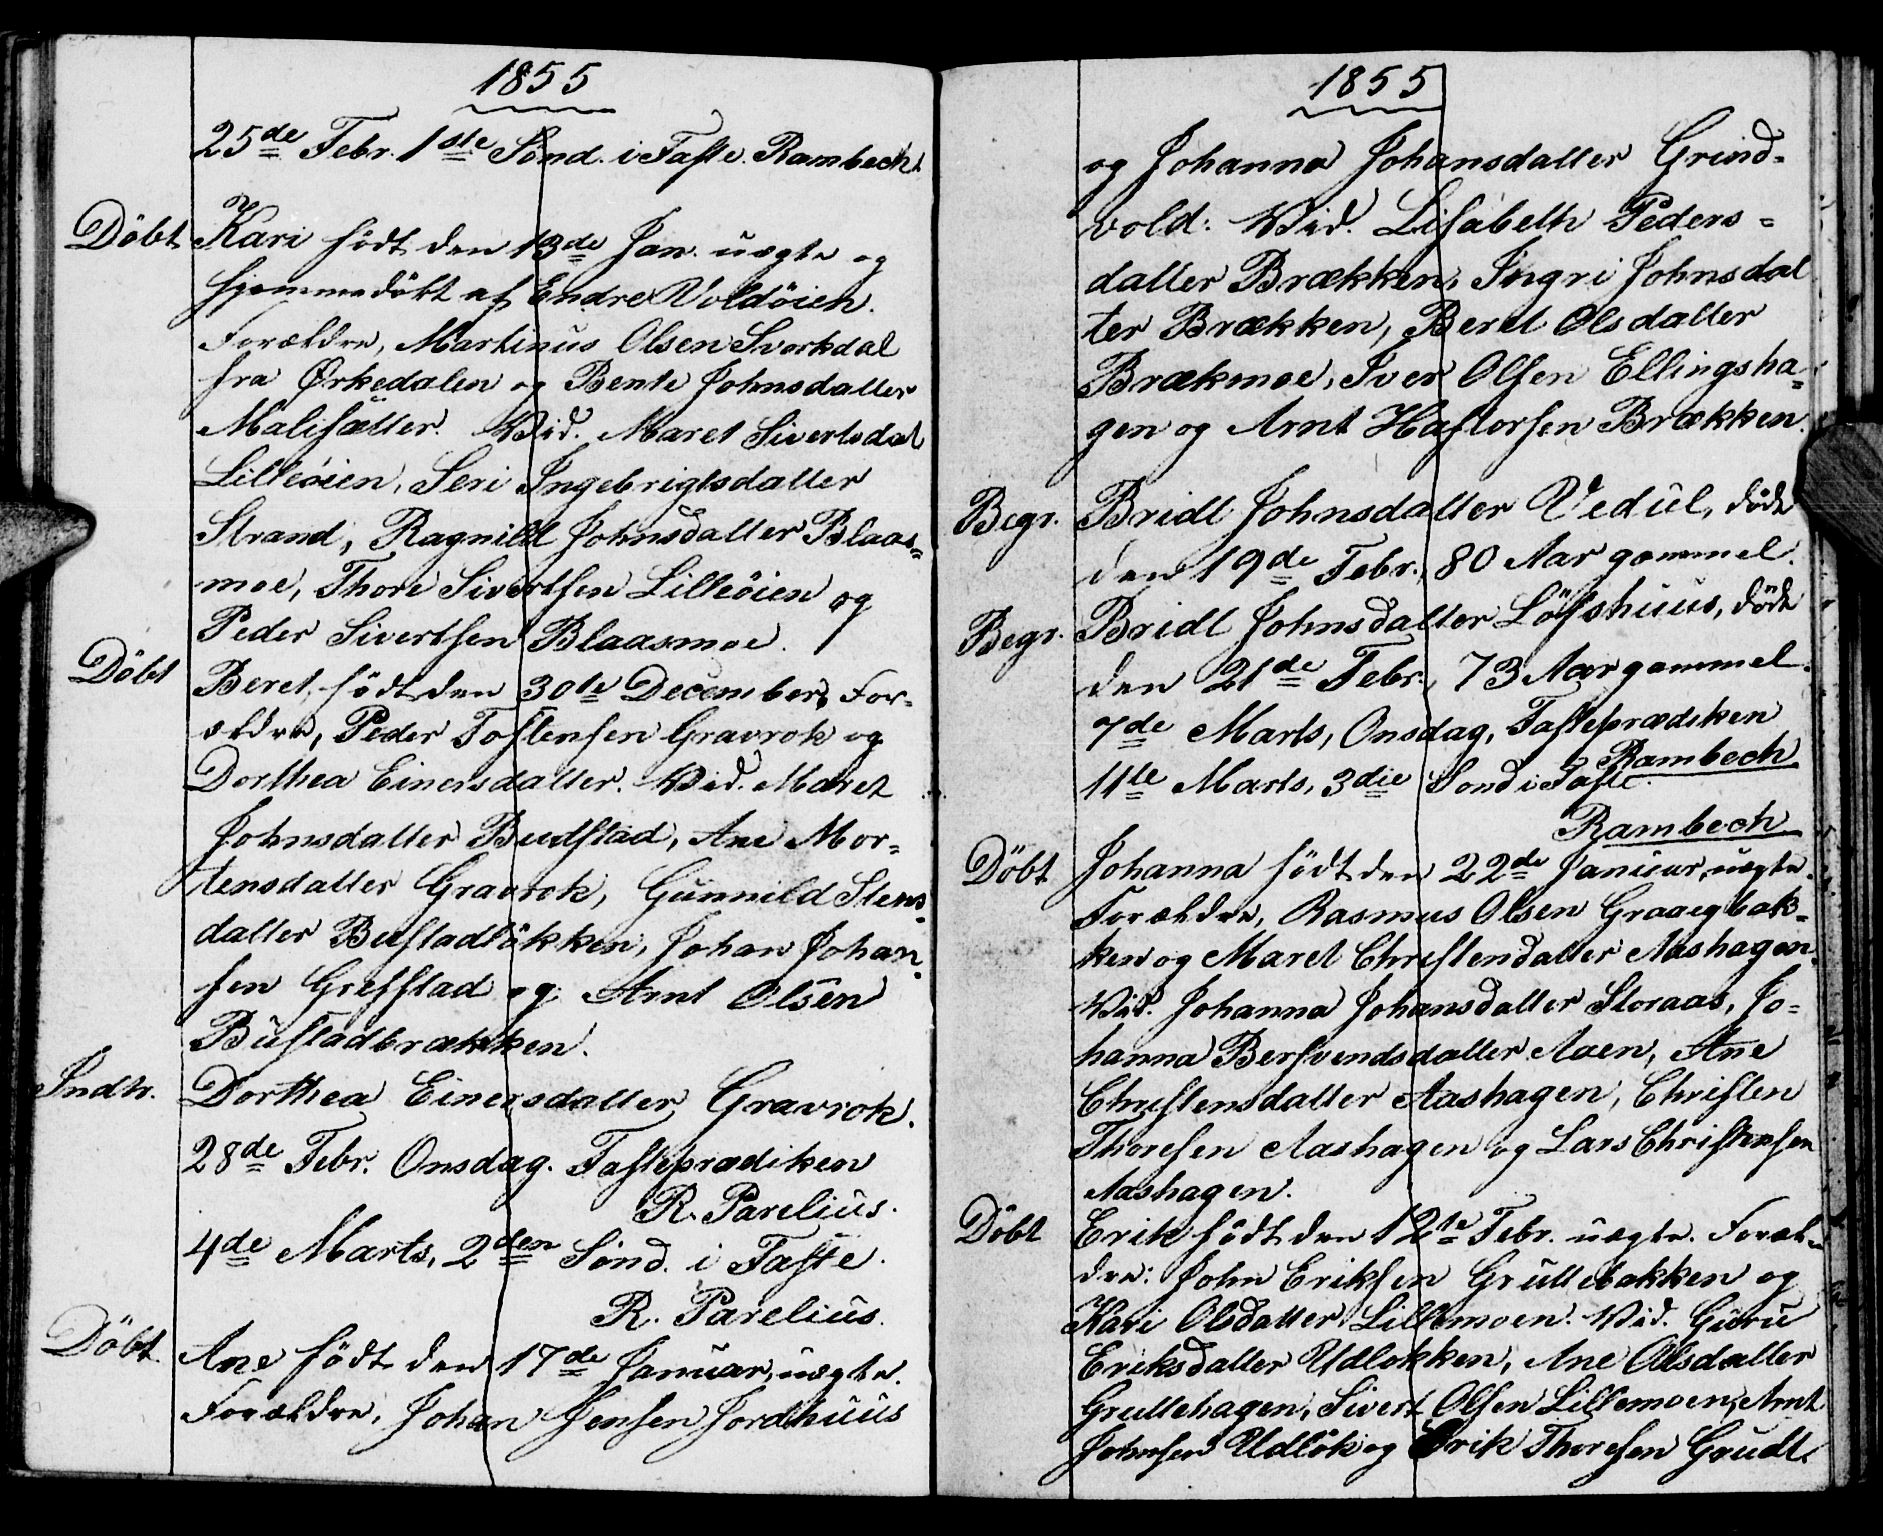 1855
25de Febr. 1ste Sönd. i Faste. Rambech.
Döbt Kari født den 13de Jan. uægte og
hjemmedøbt af Endre Voldöien.
Forældre, Martinus Olsen Svorkdal
fra Ørkedalen og Bente Johnsdatter
Malisætter. Vid. Maret Sivertsdat
Lilleöien, Seri Ingebrigtsdatter
Strand, Ragnild Johnsdatter Blaas=
moe, Thore Sivertsen Lilleöien og
Peder Sivertsen Blaasmoe.
Döbt Beret, født den 30te December, For=
ældre, Peder Tostensen Gravrok og
Dorthea Einersdatter. Vid. Maret
Johnsdatter Budstad, Ane Mor=
tensdatter Gravrok, Gunnild Stens=
datter Bustadlökken, Johan Johan=
sen Grefstad og Arnt Olsen
Bustadbrækken.
Indtr. Dorthea Einersdatter Gravrok.
28de Febr. Onsdag. Fasteprædiken
R. Parelius.
4de Marts, 2den Sönd. i Faste.
R. Parelius.
Döbt. Ane født den 17de Januar, uægte.
Forældre, Johan Jensen Jordhuus
1855
og Johanna Johansdatter Grind=
vold. Vid. Lisabeth Peders=
datter Brækken, Ingri Johnsdat
ter Brækken, Beret Olsdatter
Brækmoe, Iver Olsen Ellingsha=
gen og Arnt Hastorsen Brækken.
Begr. Bridt Johnsdatter Vedul, död
den 19de Febr., 80 Aar gammel.
Begr. Bridt Johnsdatter Löfshuus, död
den 21de Febr., 73 Aar gammel.
7de Marts, Onsdag, Fasteprædiken
Rambech
11te Marts, 3die Sönd i Faste.
Rambech
Döbt Johanna født den 22de Januar, uægte.
Forældre, Rasmus Olsen Graaegbak=
ken og Maret Christendatter Aashagen.
Vid. Johanna Johansdatter Storaas, Jo=
hanna Bersvendsdatter Aaen, Ane
Christensdatter Aashagen, Christen
Thoresen Aashagen og Lars Christensen
Aashagen.
Döbt Erik født den 12te Febr. uægte. Foræl=
dre: John Eriksen Gruttebakken og
Kari Olsdatter Lillemoen. Vid. Guru
Eriksdatter Udlökken, Ane Olsdatter
Gruttehagen, Sivert Olsen Lillemoen, Arnt
Johnsen Udlök og Erik Thoresen Grudt.